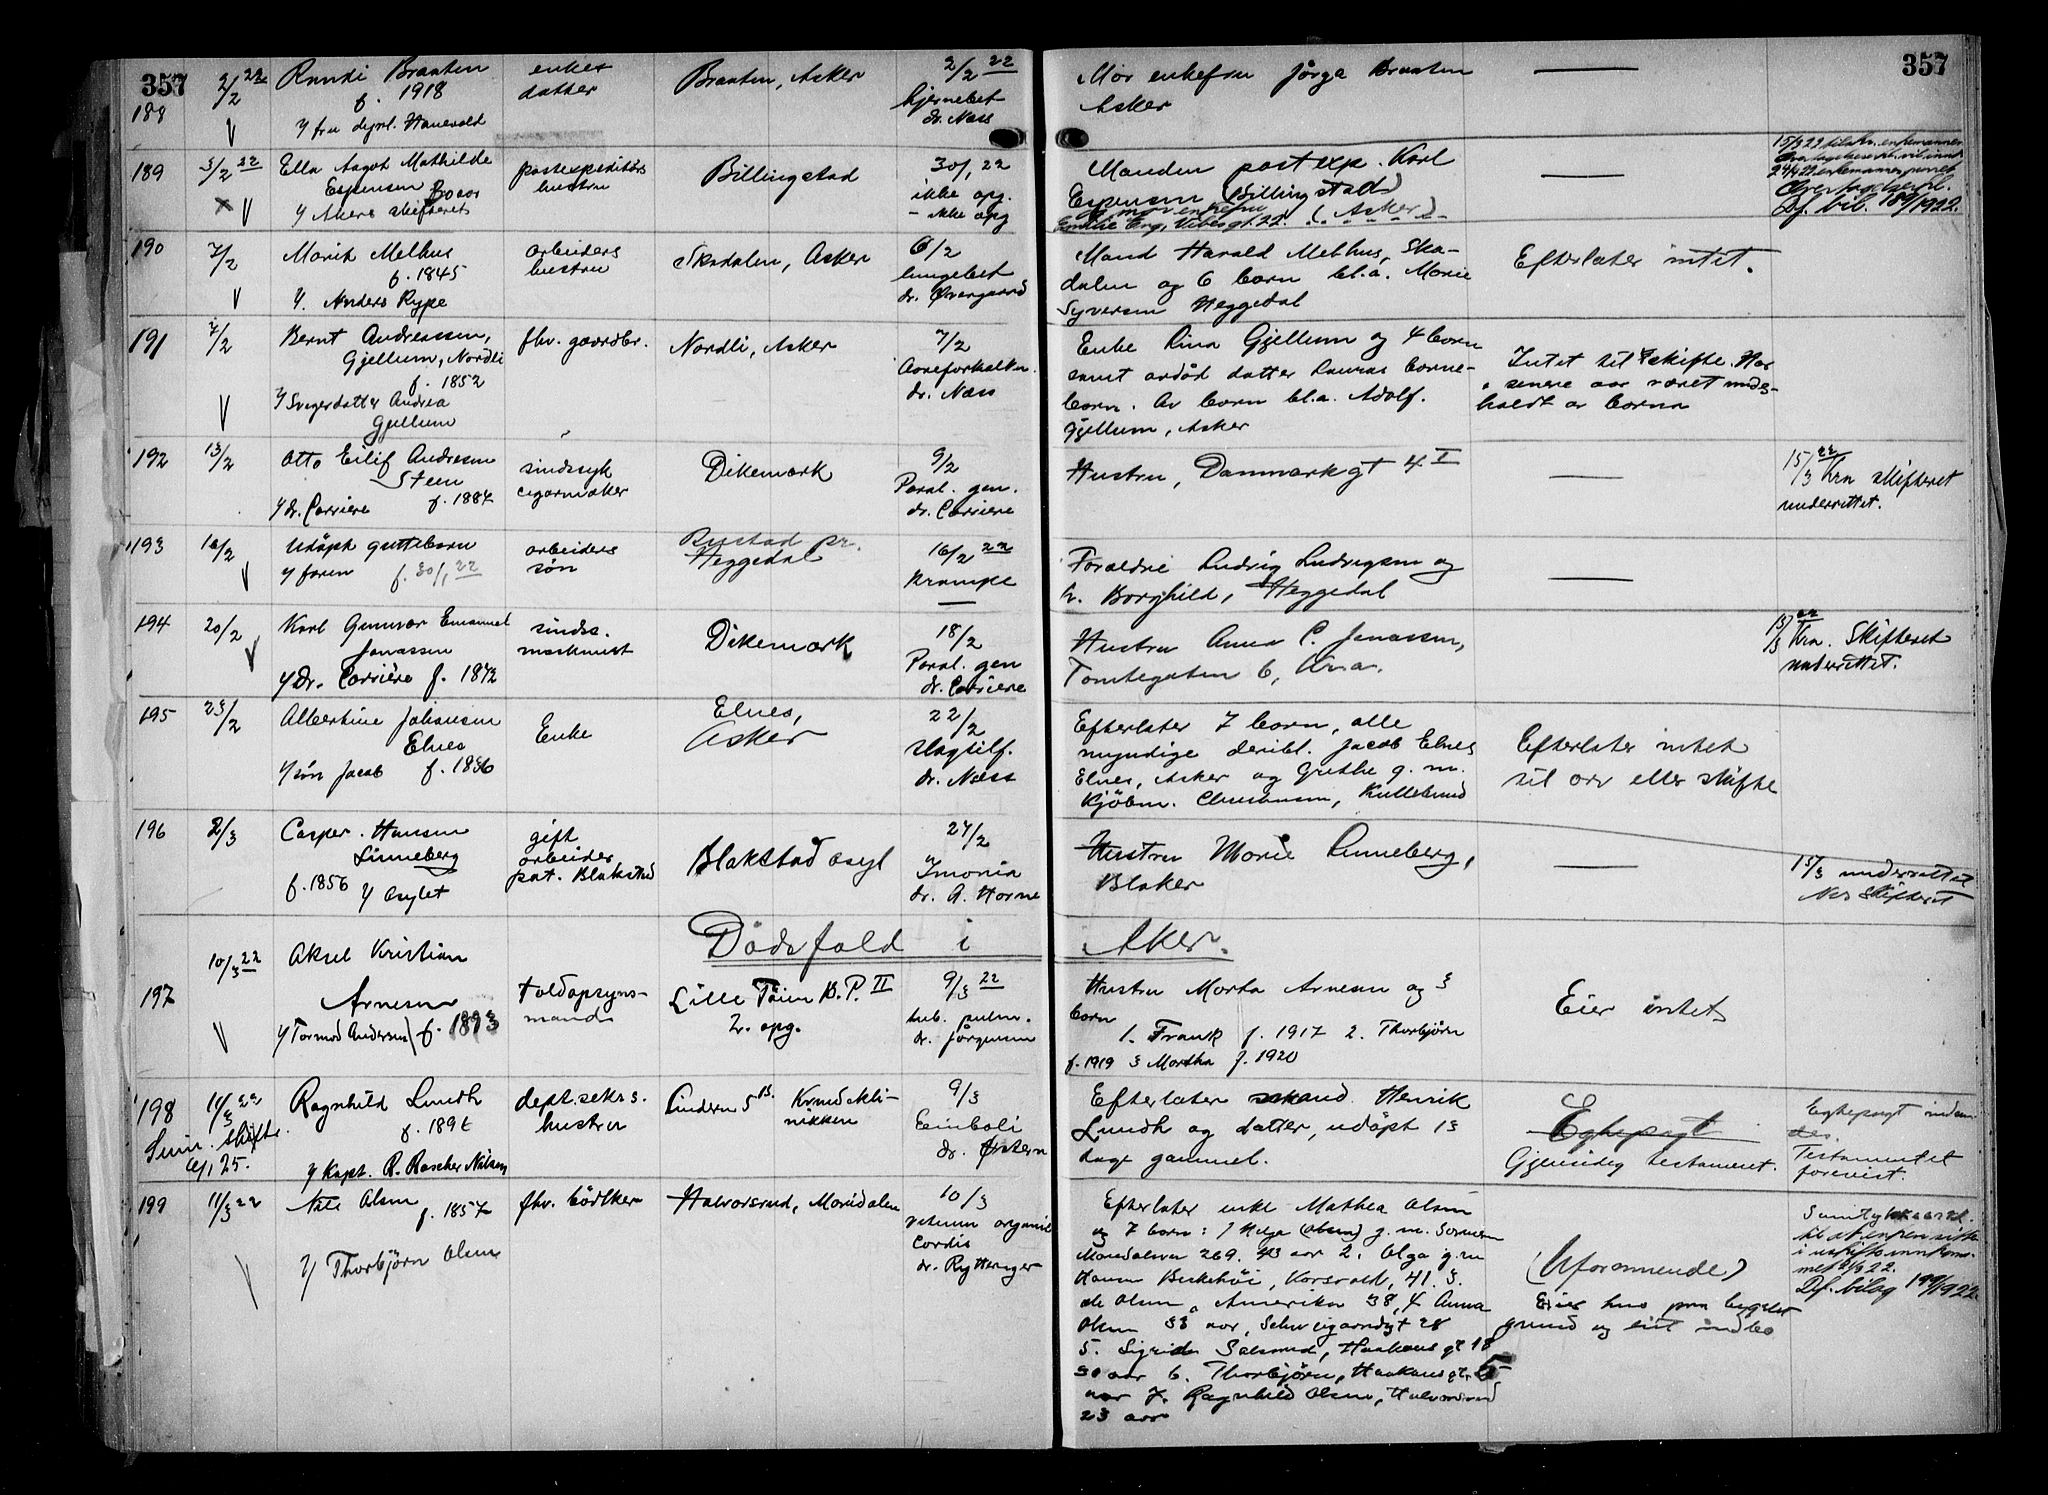 357
357
188
2/2 22
Braaten
f. 1918
enkes
datter
Braaten, Asker
2/2 22
hjernebet
dr. Næss
Mor enkefru Jørga Braaten
Asker
189
3/2 22
Ella Aagot Mathilde
Espensen
y Akers skifteret
postexpeditørs
hustru
Billingstad
30/1 22
ikke opg.
- ikke opg
Manden postexp. Karl
Espensen (Billingstad)
(Asker)
Df. bil. 189/1922.
190
7/2
Marit Melhus
f. 1845
y. Anders Rype
arbeiders
hustru
Skadalen, Asker
6/2
lungebet
dr. Øvergaard
Mand Harald Melhus, Ska-
dalen og 6 born bl.a. Marie
Syversen Heggedal
Efterlater intet.
191
7/2
Bernt Andreassen,
Gjellum, Nordli
f. 1852
y Svigerdatter Andrea
Gjellum
fhv. gaardbr.
Nordli, Asker
7/2
Aareforkalkn.
dr. Næss
Enke Lina Gjellum og 4 born
samt avdød datter Lauras borne-
born. Av born bl.a. Adolf.
Gjellum, Asker
Intet til skifte. Har
senere aar været under-
holdt av borna
192
13/2
Otto Eilif Andresen
Steen
y dr. Carriere f. 1884
sindssyk
cigarmaker
Dikemark
9/2
Paral. gen.
dr. Carriere
Hustru, Danmarkgt 4 I
15/3 22 Kra skifteret
underrettet.
193
16/2
Udøpt guttebarn
y faren f. 30/1 22
arbeiders
søn
Bustad pr.
Heggedal
16/2 22
krampe
Foraeldre Ludvig Ludvigsen og
h. Borghild, Heggedal
194
20/2
Karl Gunnar Emanuel
Jonassen
y Dr. Carriére f. 1872
sindss.
maskinist
Dikemark
18/2
Paral. gen
dr. Carriere
Hustru Anna C. Jonassen,
Tomtegaten 6, Kra.
15/3 22 Kra. Skifteret
underrettet.
195
23/2
Albertine Johansen
Elnes
y søn Jacob f. 1836
Enke
Elnes,
Asker
22/2
slagtilf.
dr. Næss
Efterlater 7 born, alle
myndige deribl. Jacob Elnes
Elnes, Asker og Grethe g. m.
Kjøbm. Christensen, Kullebund
Efterlater intet
til arv eller skifte
196
2/3
Casper Hansen
Linneberg
f. 1856 y Asylet
gift
arbeider
pat. Blakstad
Blakstad asyl
27/2
dr. A. Horne
Hustru Marie Linneberg,
Blaker
15/3 underrettet
Nes Skifteret
Dødsfald i Aker.
197
10/3 22
Aksel Kristian
Arnesen
y Tormod Andersen f. 1893
toldopsyns-
mand
Lille Tøien B.P. II
2. opg.
9/3 22
tub. pulm.
dr. Jørgensen
Hustru Marta Arnesen og 3
born
1. Frank f. 1917 2. Thorbjørn
f. 1919 3 Martha f. 1920
Eier intet
198
11/3 22
Ragnhild Lundh
y Kapt. R. Roscher Nilsen
dept. sekrs.
hustru
Lindern 5 B.
Kvindekli-
nikken
9/3
Emboli
dr. Østern
Efterlater mand Henrik
Lundh og datter, udøpt 13
dage gammel.
Egtepagt
Gjensidig testament.
Testamentet
forevist.
199
11/3 22
Nils Olsen
f. 1857
y Thorbjørn Olsen
fhv. bødtker
Halvorsrud, Maridalen
10/3
vitium organic
cordis
dr. Rytterager
Efterlater enke Mathea Olsen
og 7 born: 1 Helga (Olsen) g. m.
Maridalsvn 269. 43 aar 2. Olga g. m
Korsvold, 41. 3.
Olsen, Amerika 38, 4 Anna
Olsen 33 aar, Schweigaardsgt 28
5. Sigrid
30 aar 6. Thorbjørn, Haakonsgt
aar 7. Ragnhild Olsen, Halvorsrud
23 aar
(Uformuende)
Eier hus paa bygslet
grund og litt indbo
Df. bilag 199/1922.